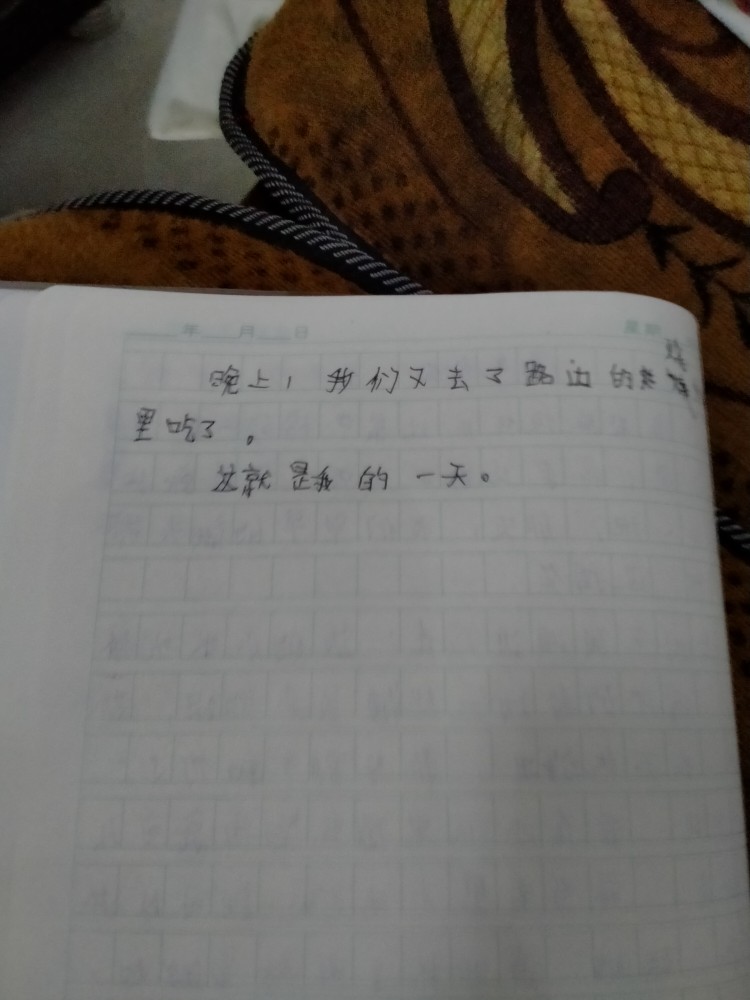 年 月 日 星期
晚上，我们又去了路边的
里吃了。
这就是我的一天。